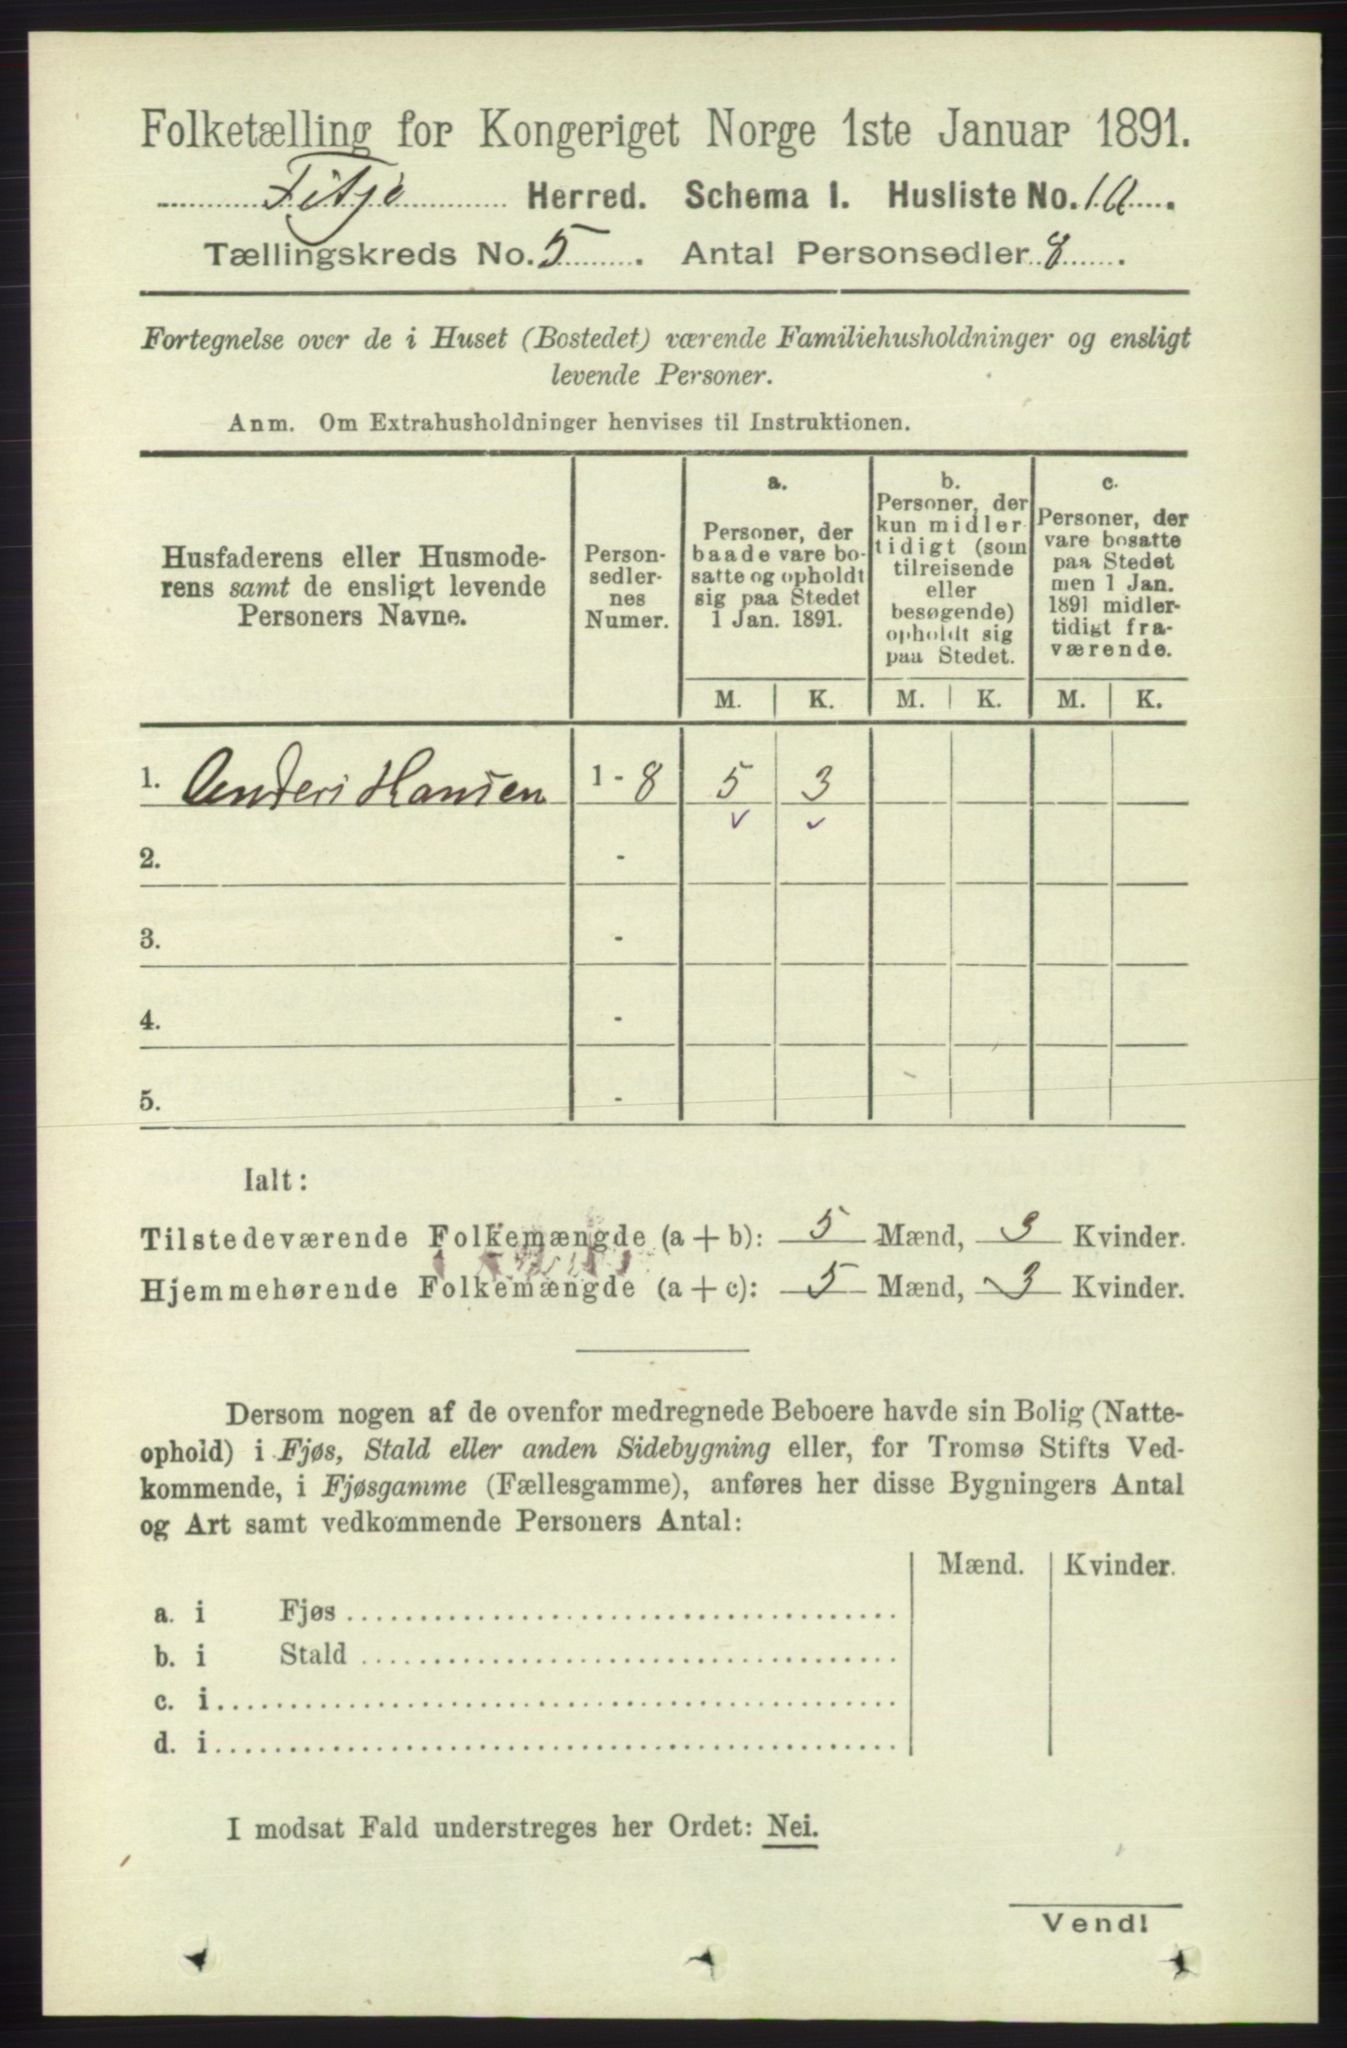 Folketælling for Kongeriget Norge 1ste Januar 1891.
Fitje Herred. Schema 1. Husliste No. 1a.
Tællingskreds No. 5. Antal Personsedler 8.
Fortegnelse over de i Huset (Bostedet) værende Familiehusholdninger og ensligt
levende Personer.
Anm. Om Extrahusholdninger henvises til Instruktionen.
Husfaderens eller Husmode-
rens samt de ensligt levende
Personers Navne.
Person-
sedler-
nes
Numer.
a.
Personer, der
baade vare bo-
satte og opholdt
sig paa Stedet
1 Jan. 1891.
b.
Personer, der
kun midler-
tidigt (som
tilreisende
eller
besøgende)
opholdt sig
paa Stedet.
c.
Personer, der
vare bosatte
paa Stedet
men 1 Jan.
1891 midler-
tidigt fra-
værende.
M. K. M. K. M. K.
1. Anders Hansen 1 - 8 5 3
2. -
3. -
4. -
5. -
Ialt:
Tilstedeværende Folkemængde (a + b): 5 Mænd, 3 Kvinder.
Hjemmehørende Folkemængde (a + c): 5 Mænd, 3 Kvinder.
Dersom nogen af de ovenfor medregnede Beboere havde sin Bolig (Natte-
ophold) i Fjøs, Stald eller anden Sidebygning eller, for Tromsø Stifts Ved-
kommende, i Fjøsgamme (Fællesgamme), anføres her disse Bygningers Antal
og Art samt vedkommende Personers Antal:
Mænd. Kvinder.
a. i Fjøs
b. i Stald
c. i
d. i
I modsat Fald understreges her Ordet: Nei.
Vend!